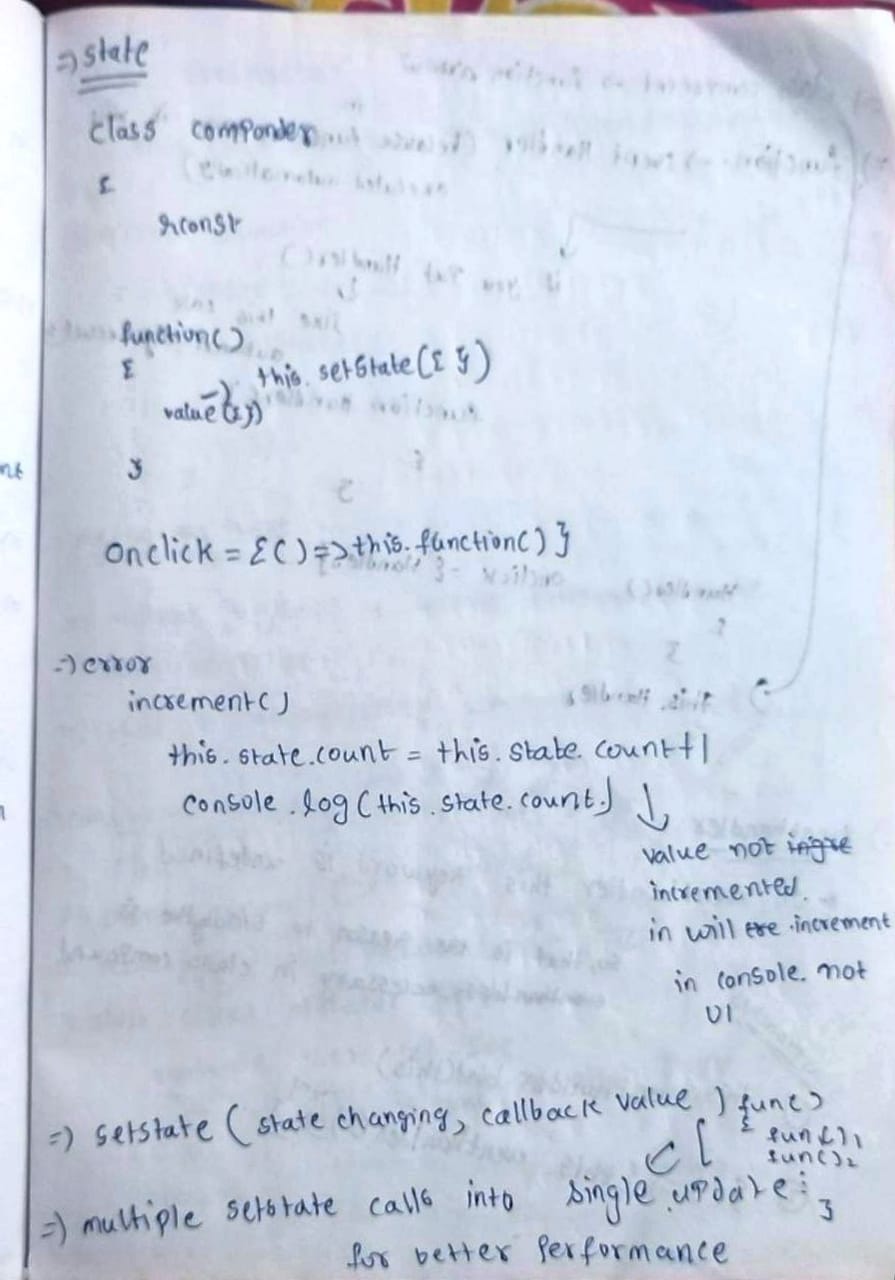 =) state
class componder
{
rconst
function()
{ this.setState({ })
value
}
onclick = {() => this.function() }
=) error
increment()
this.state.count = this.state.count+1
console.log(this.state.count.) ↓
value not ingre
incremented.
in will the increment
in console. not
UI
=) setstate ( state changing, callback value ) func)
{ fun()1
fun()2
=) multiple setstate calls into single update
}
for better Performance